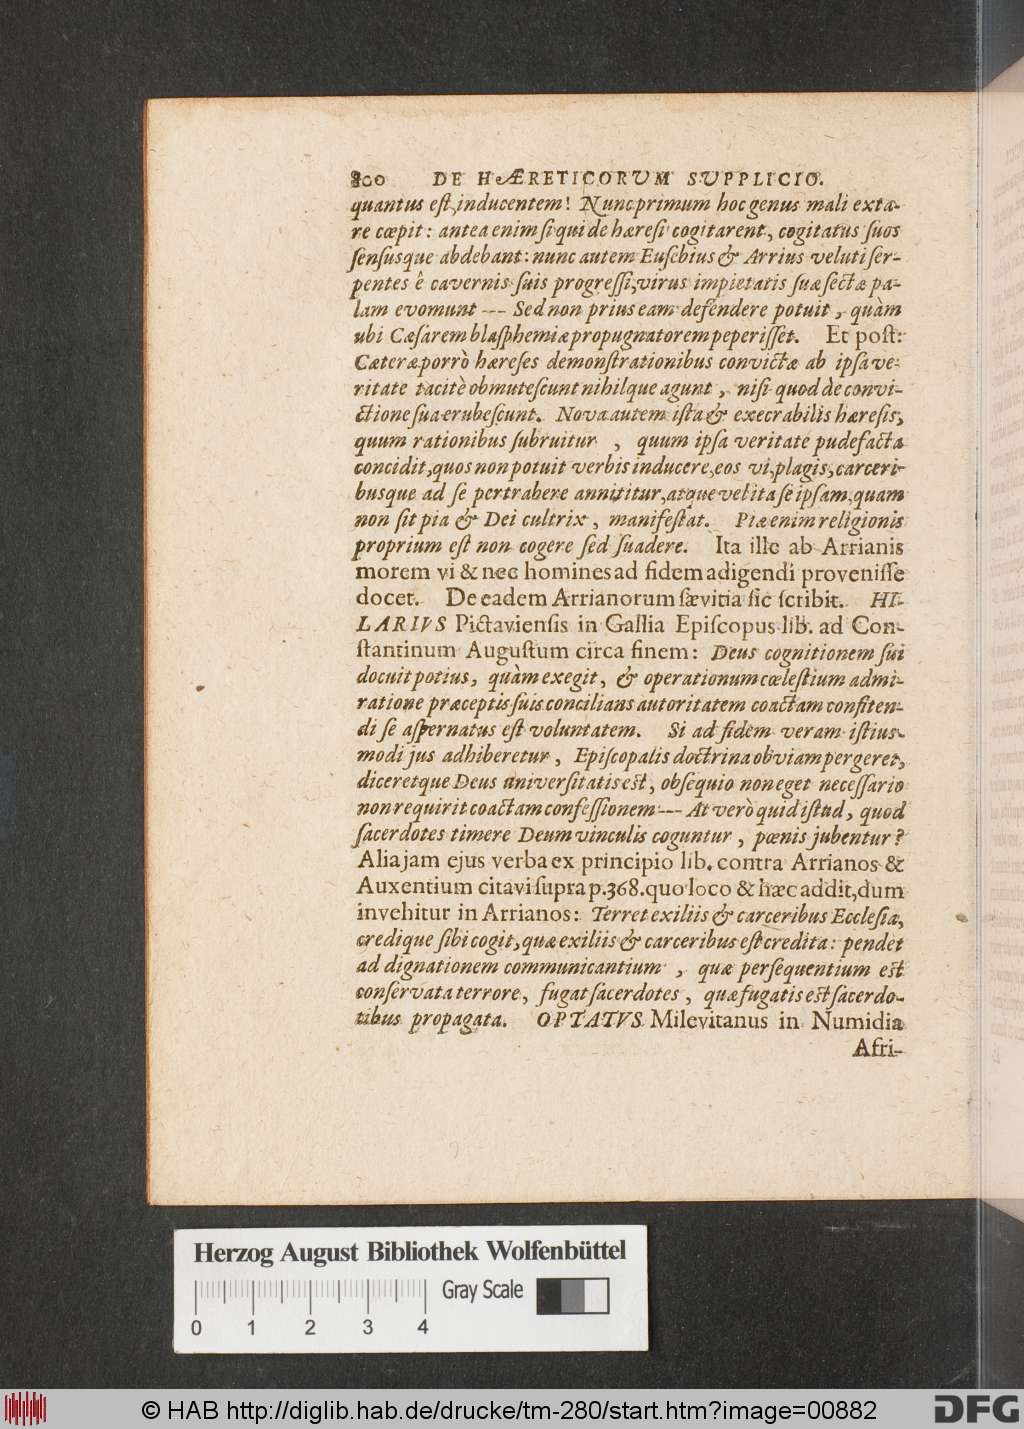 800 DE HÆRETICORVM SVPPLICIO.
quantus eſt, inducentem! Nunc primum hoc genus mali exta-
re cœpit: antea enim ſi qui de hæreſi cogitarent, cogitatus ſuos
ſenſusque abdebant: nunc autem Euſebius & Arrius veluti ſer-
pentes ê cavernis ſuis progreſſi, virus impietatis ſuæ ſectæ pa-
lam evomunt --- Sed non prius eam defendere potuit, quàm
ubi Cæſarem blaſphemiæ propugnatorem peperiſſet. Et poſt:
Cæteræ porrò hæreſes demonſtrationibus convictæ ab ipſa ve-
ritate tacitè obmuteſcunt nihilque agunt, niſi quod de convi-
ctione ſua erubeſcunt. Nova autem iſta & execrabilis hæreſis,
quum rationibus ſubruitur, quum ipſa veritate pudefacta
concidit, quos non potuit verbis inducere, eos vi, plagis, carceri-
busque ad ſe pertrahere annititur, atque vel ita ſe ipſam, quam
non ſit pia & Dei cultrix, manifeſtat. Piæ enim religionis
proprium eſt non cogere ſed ſuadere. Ita ille ab Arrianis
morem vi & nec homines ad fidem adigendi proveniſſe
docet. De eadem Arrianorum ſævitia ſic ſcribit. HI-
LARIVS Pictavienſis in Gallia Epiſcopus lib. ad Con-
ſtantinum Auguſtum circa finem: Deus cognitionem ſui
docuit potius, quàm exegit, & operationum cœleſtium admi-
ratione præceptis ſuis concilians autoritatem coactam confiten-
di ſe aſpernatus eſt voluntatem. Si ad fidem veram iſtius-
modi jus adhiberetur, Epiſcopalis doctrina obviam pergeret,
diceretque Deus univerſitatis eſt, obſequio non eget neceſſario
non requirit coactam confeſſionem --- At verò quid iſtud, quod
ſacerdotes timere Deum vinculis coguntur, pœnis jubentur?
Alia jam ejus verba ex principio lib. contra Arrianos &
Auxentium citavi ſupra p. 368. quo loco & hæc addit, dum
invehitur in Arrianos: Terret exiliis & carceribus Eccleſia,
credique ſibi cogit, quæ exiliis & carceribus eſt credita: pendet
ad dignationem communicantium, quæ perſequentium eſt
conſervata terrore, fugat ſacerdotes, quæ fugatis eſt ſacerdo-
tibus propagata. OPTATVS Milevitanus in Numidia
Afri-
Herzog August Bibliothek Wolfenbüttel
Gray Scale
0 1 2 3 4
© HAB http://diglib.hab.de/drucke/tm-280/start.htm?image=00882
DFG